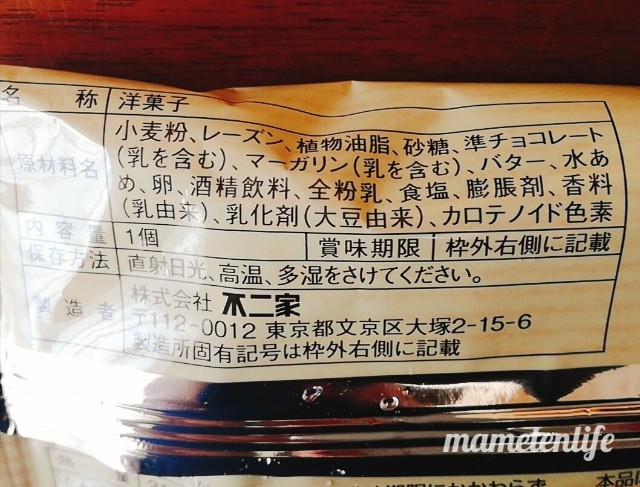 名 称 洋菓子
原材料名 小麦粉、レーズン、植物油脂、砂糖、準チョコレート
(乳を含む)、マーガリン(乳を含む)、バター、水あ
め、卵、酒精飲料、全粉乳、食塩、膨脹剤、香料
(乳由来)、乳化剤(大豆由来)、カロテノイド色素
内容量 1個 賞味期限 枠外右側に記載
保存方法 直射日光、高温、多湿をさけてください。
製造者 株式会社 不二家
〒112-0012 東京都文京区大塚2-15-6
製造所固有記号は枠外右側に記載
mametenlife
本品